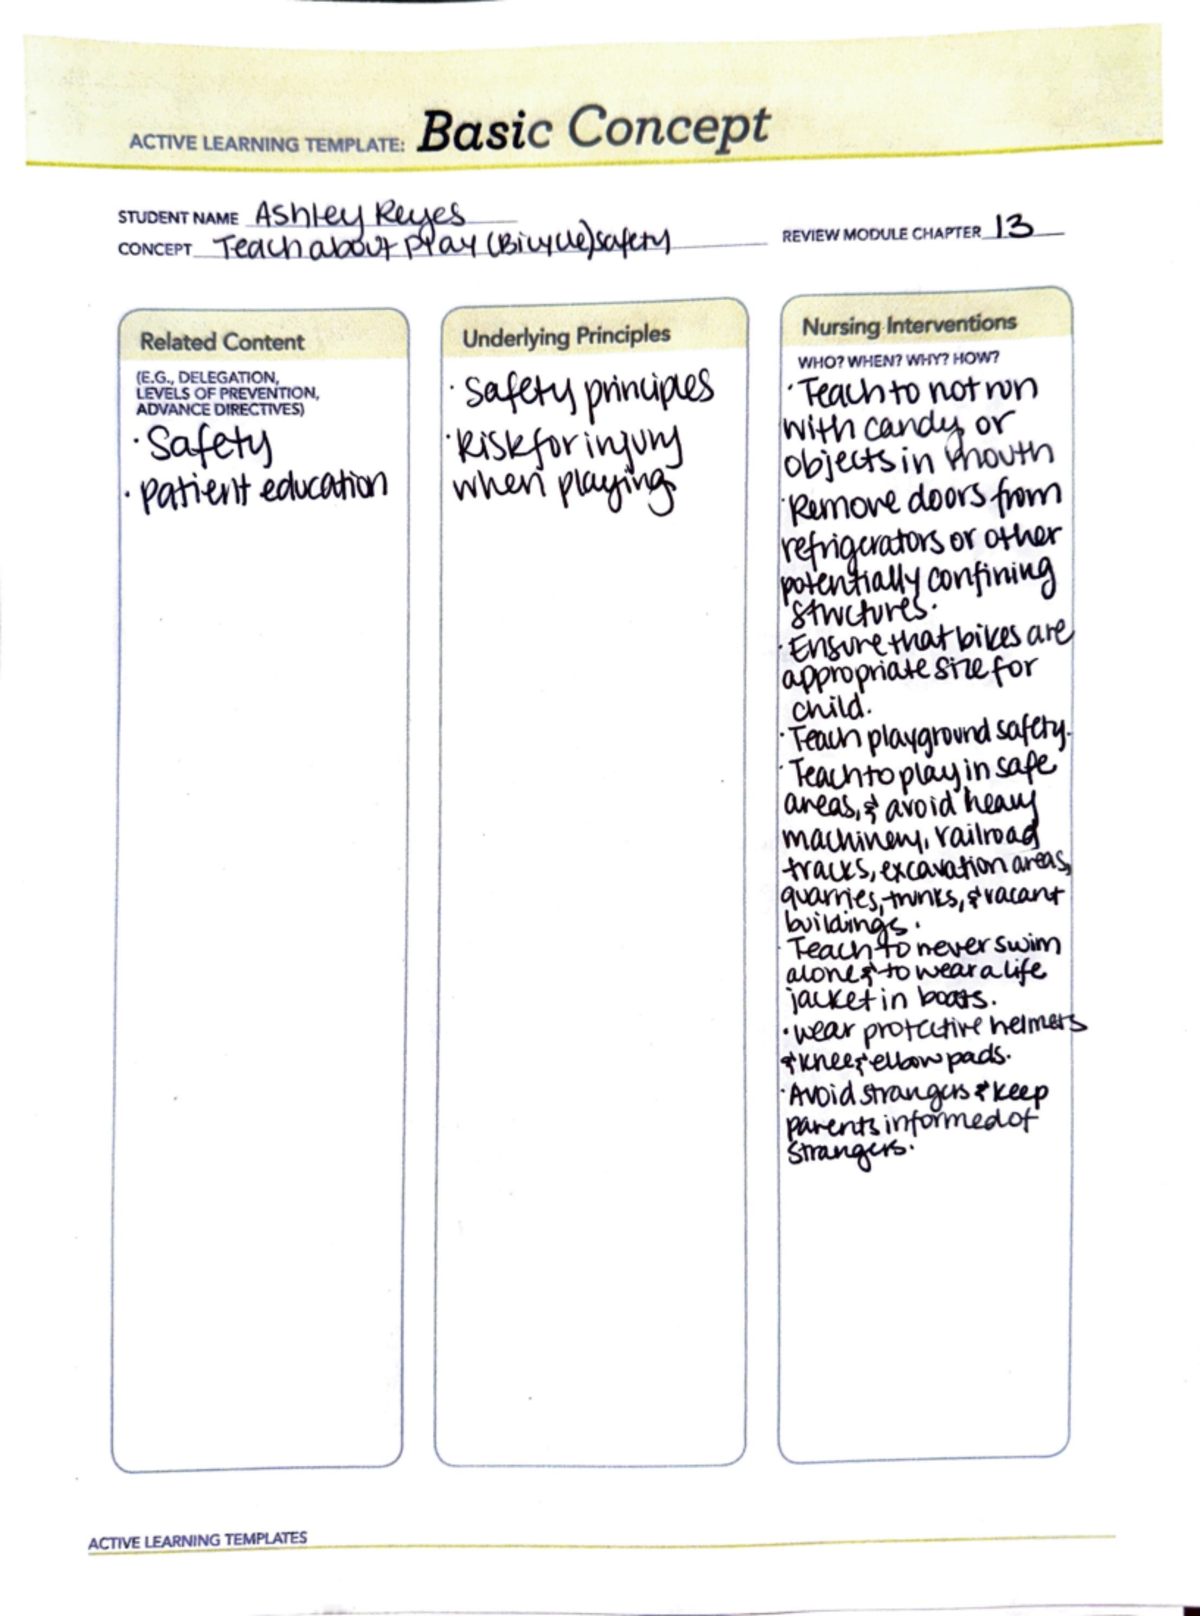 ACTIVE LEARNING TEMPLATE: Basic Concept
STUDENT NAME Ashley Reyes
CONCEPT Teach about play (Bicycle) safety
REVIEW MODULE CHAPTER 13
Related Content
(E.G., DELEGATION,
LEVELS OF PREVENTION,
ADVANCE DIRECTIVES)
· Safety
· patient education
Underlying Principles
· Safety principles
· Risk for injury
when playing.
Nursing Interventions
WHO? WHEN? WHY? HOW?
· Teach to not run
with candy or
objects in mouth
· Remove doors from
refrigerators or other
potentially confining
structures.
· Ensure that bikes are
appropriate size for
child.
· Teach playground safety.
· Teach to play in safe
areas, & avoid heavy
machinery, railroad
tracks, excavation areas,
quarries, trunks, & vacant
buildings.
· Teach to never swim
alone & to wear a life
jacket in boats.
· wear protective helmets
& knee & elbow pads.
· Avoid strangers & keep
parents informed of
strangers.
ACTIVE LEARNING TEMPLATES